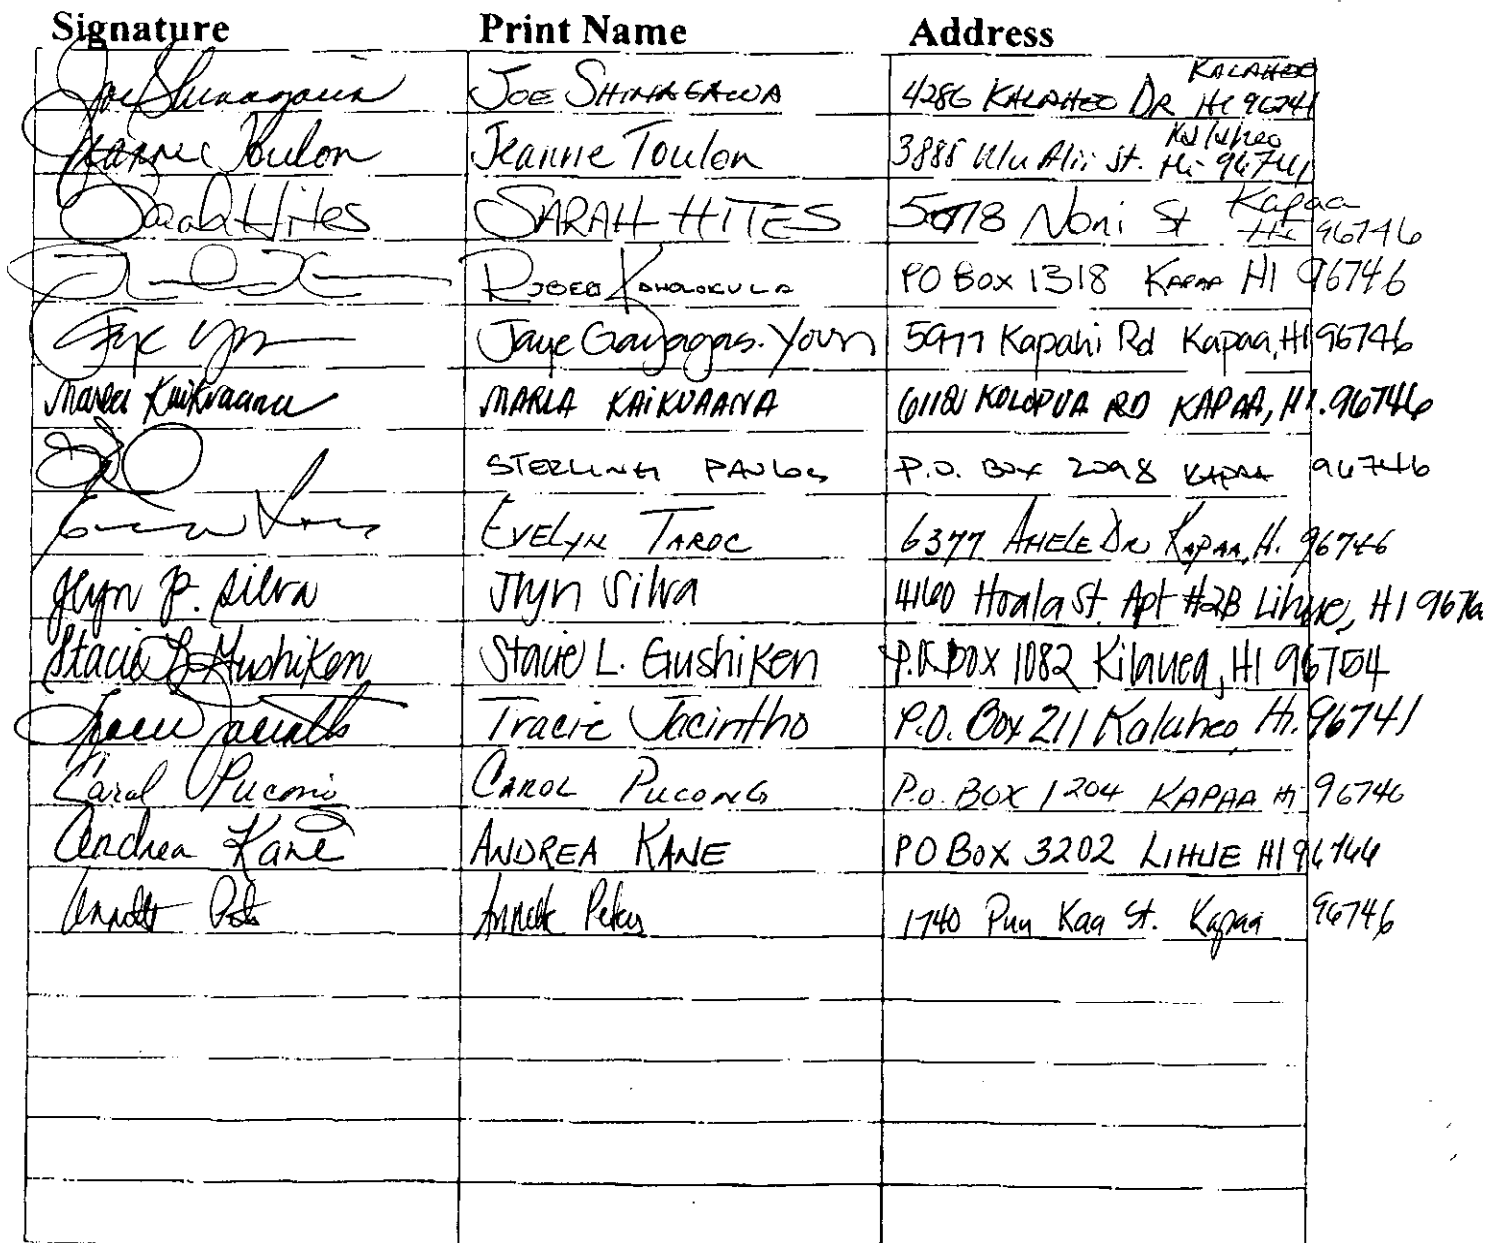 Signature Print Name Address
Joe Shinagawa JOE SHINAGAWA 4286 KALAHEO DR KALAHEO HI 96741
Jeanne Toulon Jeanne Toulon 3885 Ulu Alii St. Kalaheo Hi 96741
Sarah Hites SARAH HITES 5078 Noni St Kapaa Hi 96746
KAHOLOKULA PO BOX 1318 KAPAA HI 96746
Jaye Gayagas-Youn 5977 Kapahi Rd Kapaa, HI 96746
Marla Kaikuaana MARLA KAIKUAANA KOLOPUA RD KAPAA, HI. 96746
STERLING P.O. BOX 2098 KAPAA 96746
EVELYN TAROC 6377 AHELE DR KAPAA, H. 96746
Jlyn P. Silva Jlyn Silva 4160 Hoala St. Apt #2B Lihue, HI
Stacie L. Gushiken Stacie L. Gushiken P.O. BOX 1082 Kilauea, HI 96754
Tracie Jacintho Tracie Jacintho P.O. Box 211 Kalaheo Hi. 96741
Carol Pucong CAROL PUCONG P.O. BOX 1204 KAPAA Hi 96746
Andrea Kane ANDREA KANE PO BOX 3202 LIHUE HI 96766
Annette Annette Peters 1740 Puu Kaa St. Kapaa 96746